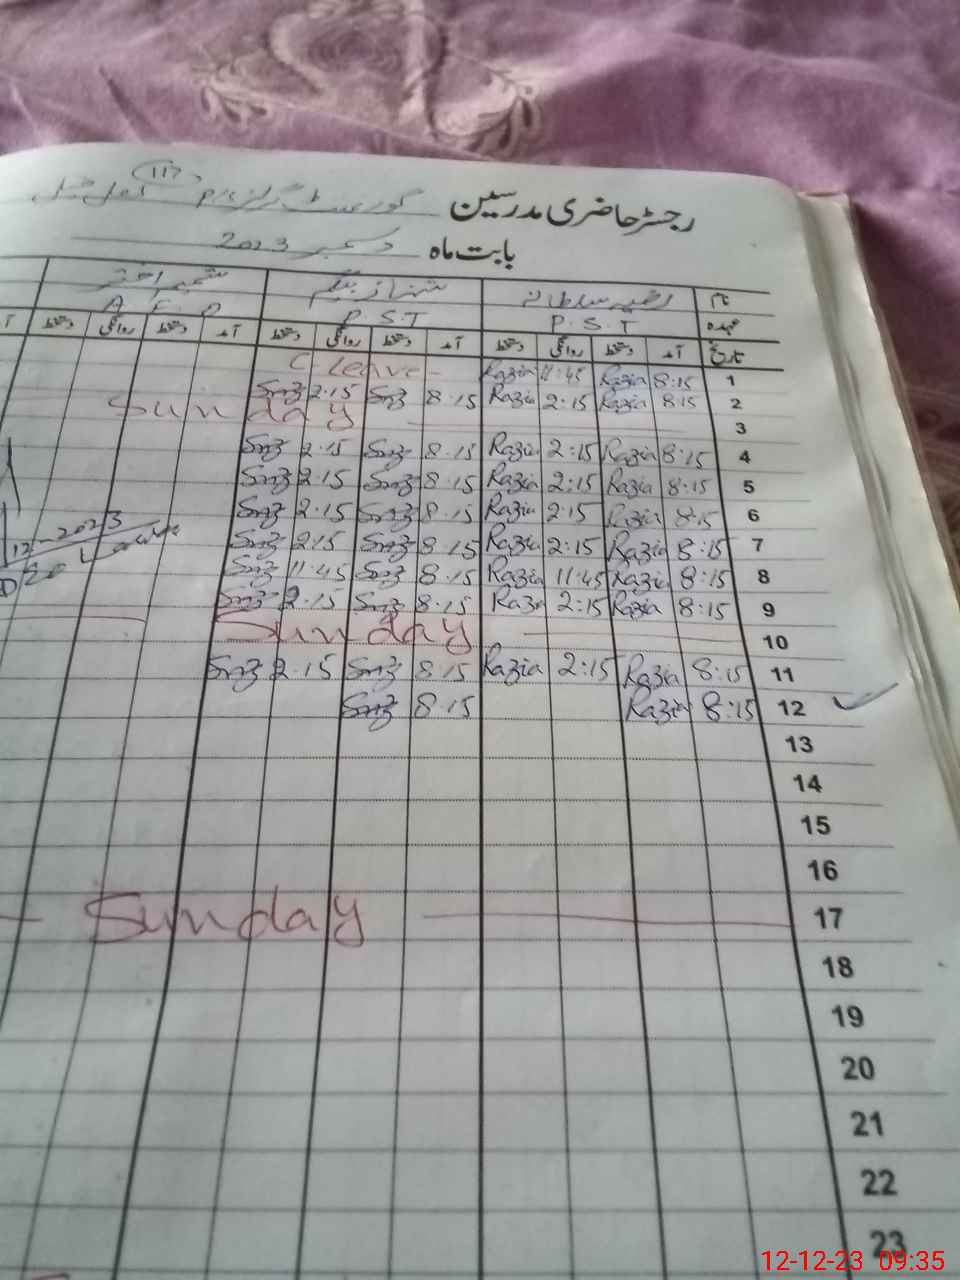 117
رجسٹر حاضری مدرسین گورنمنٹ گرلز
بابت ماہ دسمبر 2023
نام رضیہ سلطانہ شہناز بیگم شمیم اختر
عہدہ P.S.T P.S.T
تاریخ آمد دستخط روانگی دستخط آمد دستخط روانگی دستخط آمد دستخط روانگی دستخط
1 8:15 Razia 11:45 Razia C. leave -
2 8:15 Razia 2:15 Razia 8.15 2.15
3 Sunday
4 8:15 Razia 2:15 Razia 8.15 2.15
5 8:15 Razia 2:15 Razia 8.15 2.15
6 8:15 Razia 2:15 Razia 8.15 2.15
7 8:15 Razia 2:15 Razia 8.15 2.15
8 8:15 Razia 11:45 Razia 8.15 11.45
9 8:15 Razia 2:15 8.15 2.15
10 Sunday
11 8:15 Razia 2:15 Razia 8.15 2.15
12 8:15 Razia 8.15
13
14
15
16
17 Sunday
18
19
20
21
22
23
12-2023
12-12-23 09:35